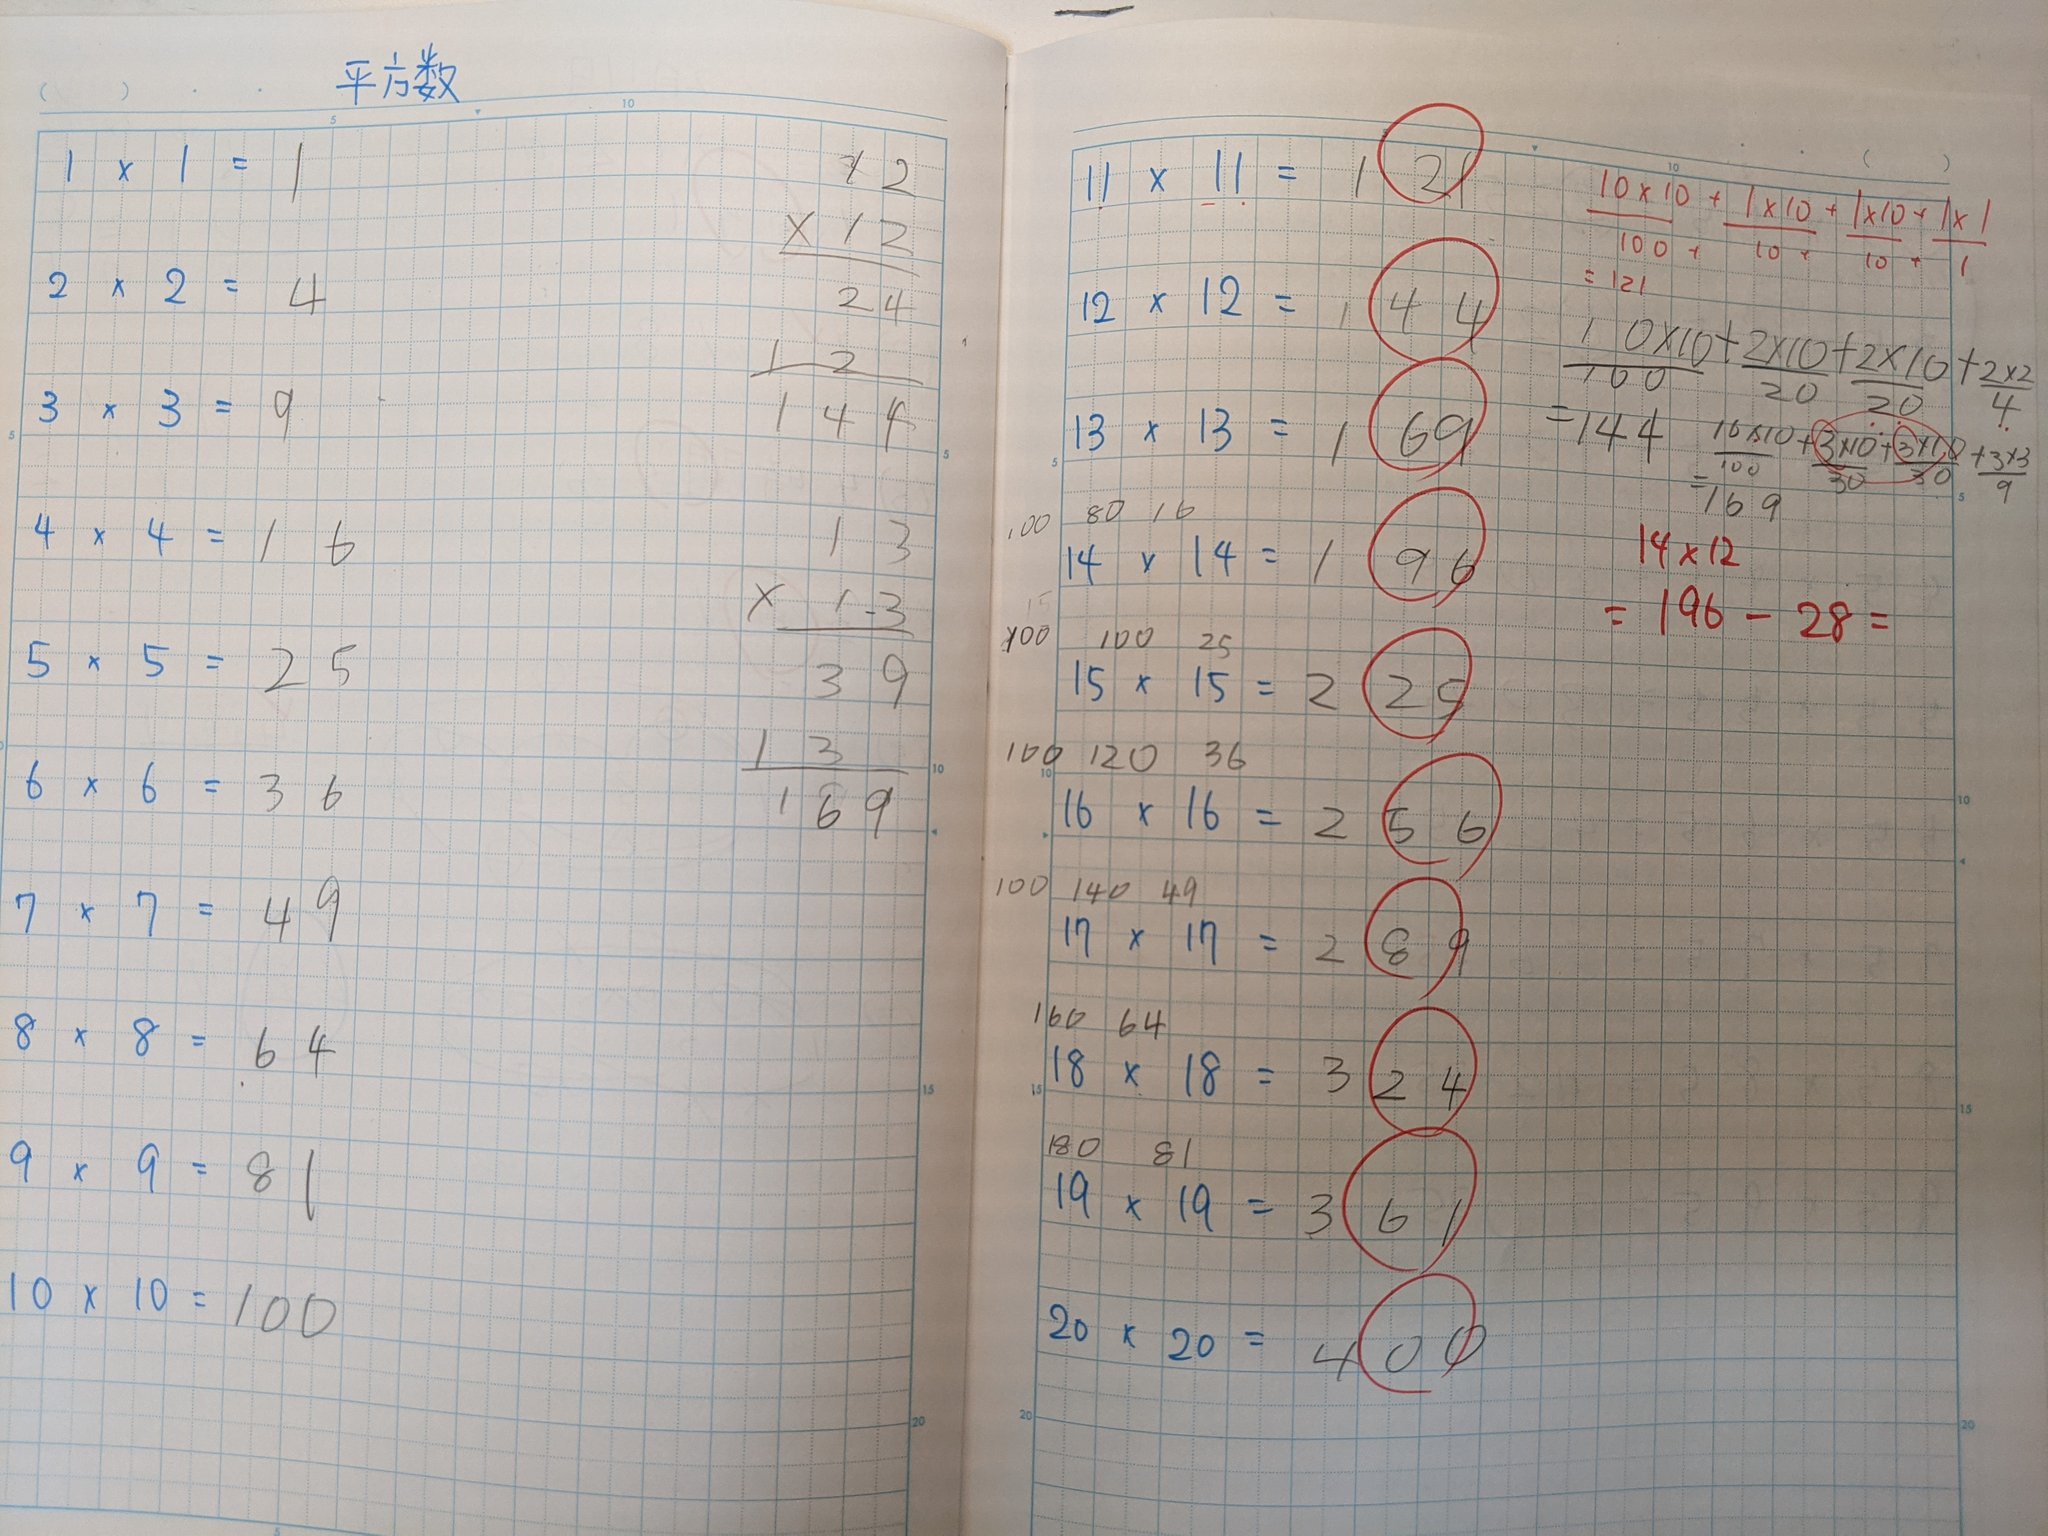 平方数
1 × 1 = 1
2 × 2 = 4
3 × 3 = 9
4 × 4 = 16
5 × 5 = 25
6 × 6 = 36
7 × 7 = 49
8 × 8 = 64
9 × 9 = 81
10 × 10 = 100
12
× 12
24
12
144
13
× 13
39
13
169
11 × 11 = 121
12 × 12 = 144
13 × 13 = 169
100 80 16
14 × 14 = 196
15
100 100 25
15 × 15 = 225
100 120 36
16 × 16 = 256
100 140 49
17 × 17 = 289
160 64
18 × 18 = 324
180 81
19 × 19 = 361
20 × 20 = 400
10×10 + 1×10 + 1×10 + 1×1
100 + 10 + 10 + 1
= 121
10×10+2×10+2×10+2×2
100 20 20 4
=144
10×10+3×10+3×10+3×3
100 30 30 9
=169
14×12
= 196 - 28 =